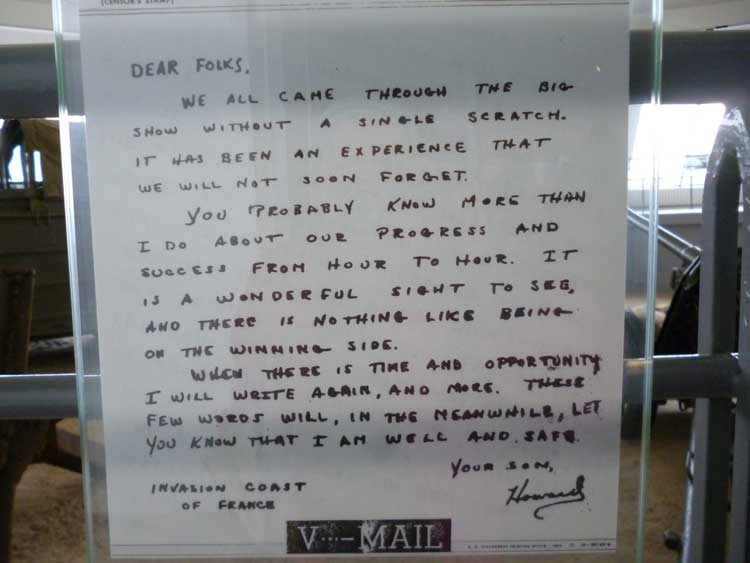 (CENSOR'S STAMP)
DEAR FOLKS,
WE ALL CAME THROUGH THE BIG
SHOW WITHOUT A SINGLE SCRATCH.
IT HAS BEEN AN EXPERIENCE THAT
WE WILL NOT SOON FORGET.
YOU PROBABLY KNOW MORE THAN
I DO ABOUT OUR PROGRESS AND
SUCCESS FROM HOUR TO HOUR. IT
IS A WONDERFUL SIGHT TO SEE,
AND THERE IS NOTHING LIKE BEING
ON THE WINNING SIDE.
WHEN THERE IS TIME AND OPPORTUNITY
I WILL WRITE AGAIN, AND MORE. THESE
FEW WORDS WILL, IN THE MEANWHILE, LET
YOU KNOW THAT I AM WELL AND SAFE.
YOUR SON,
Howard
INVASION COAST
OF FRANCE
V···–MAIL